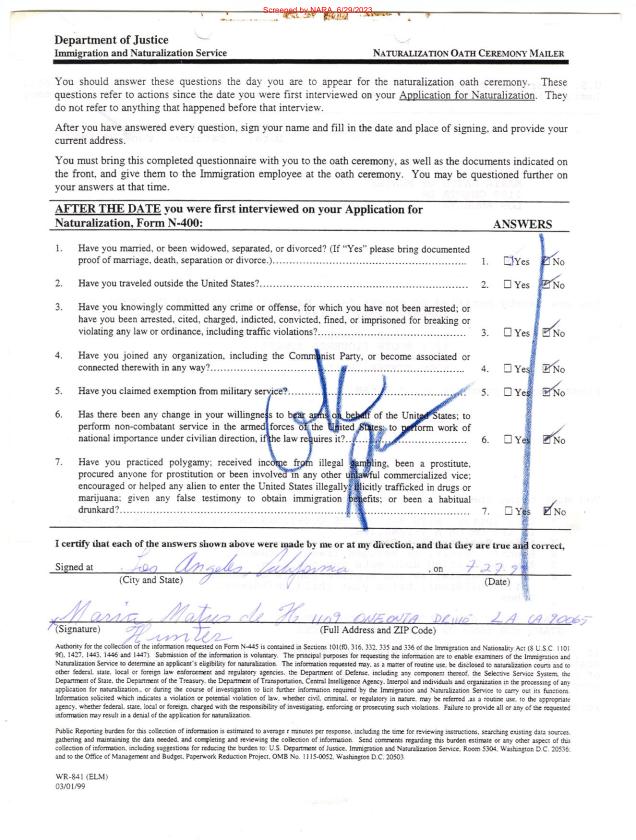 Screened by NARA, 6/29/2023
Department of Justice
Immigration and Naturalization Service NATURALIZATION OATH CEREMONY MAILER
You should answer these questions the day you are to appear for the naturalization oath ceremony. These
questions refer to actions since the date you were first interviewed on your Application for Naturalization. They
do not refer to anything that happened before that interview.
After you have answered every question, sign your name and fill in the date and place of signing, and provide your
current address.
You must bring this completed questionnaire with you to the oath ceremony, as well as the documents indicated on
the front, and give them to the Immigration employee at the oath ceremony. You may be questioned further on
your answers at that time.
AFTER THE DATE you were first interviewed on your Application for
Naturalization, Form N-400: ANSWERS
1. Have you married, or been widowed, separated, or divorced? (If "Yes" please bring documented
proof of marriage, death, separation or divorce.) 1. Yes No
2. Have you traveled outside the United States? 2. Yes No
3. Have you knowingly committed any crime or offense, for which you have not been arrested; or
have you been arrested, cited, charged, indicted, convicted, fined, or imprisoned for breaking or
violating any law or ordinance, including traffic violations? 3. Yes No
4. Have you joined any organization, including the Communist Party, or become associated or
connected therewith in any way? 4. Yes No
5. Have you claimed exemption from military service? 5. Yes No
6. Has there been any change in your willingness to bear arms on behalf of the United States; to
perform non-combatant service in the armed forces of the United States; to perform work of
national importance under civilian direction, if the law requires it? 6. Yes No
7. Have you practiced polygamy; received income from illegal gambling, been a prostitute,
procured anyone for prostitution or been involved in any other unlawful commercialized vice;
encouraged or helped any alien to enter the United States illegally; illicitly trafficked in drugs or
marijuana; given any false testimony to obtain immigration benefits; or been a habitual
drunkard? 7. Yes No
I certify that each of the answers shown above were made by me or at my direction, and that they are true and correct,
Signed at Los Angeles, California , on 7-27-9
(City and State) (Date)
Maria Matus de H 1109 ONEONTA DRIVE LA CA 90065
(Signature) Hunter (Full Address and ZIP Code)
Authority for the collection of the information requested on Form N-445 is contained in Sections 101(f), 316, 332, 335 and 336 of the Immigration and Nationality Act (8 U.S.C. 1101
9f), 1427, 1443, 1446 and 1447). Submission of the information is voluntary. The principal purposes for requesting the information are to enable examiners of the Immigration and
Naturalization Service to determine an applicant's eligibility for naturalization. The information requested may, as a matter of routine use, be disclosed to naturalization courts and to
other federal, state, local or foreign law enforcement and regulatory agencies, the Department of Defense, including any component thereof, the Selective Service System, the
Department of State, the Department of the Treasury, the Department of Transportation, Central Intelligence Agency, Interpol and individuals and organizations in the processing of any
application for naturalization., or during the course of investigation to licit further information required by the Immigration and Naturalization Service to carry out its functions.
Information solicited which indicates a violation or potential violation of law, whether civil, criminal, or regulatory in nature, may be referred ,as a routine use, to the appropriate
agency, whether federal, state, local or foreign, charged with the responsibility of investigating, enforcing or prosecuting such violations. Failure to provide all or any of the requested
information may result in a denial of the application for naturalization.
Public Reporting burden for this collection of information is estimated to average r minutes per response, including the time for reviewing instructions, searching existing data sources,
gathering and maintaining the data needed, and completing and reviewing the collection of information. Send comments regarding this burden estimate or any other aspect of this
collection of information, including suggestions for reducing the burden to: U.S. Department of Justice, Immigration and Naturalization Service, Room 5304, Washington D.C. 20536;
and to the Office of Management and Budget, Paperwork Reduction Project, OMB No. 1115-0052, Washington D.C. 20503.
WR-841 (ELM)
03/01/99